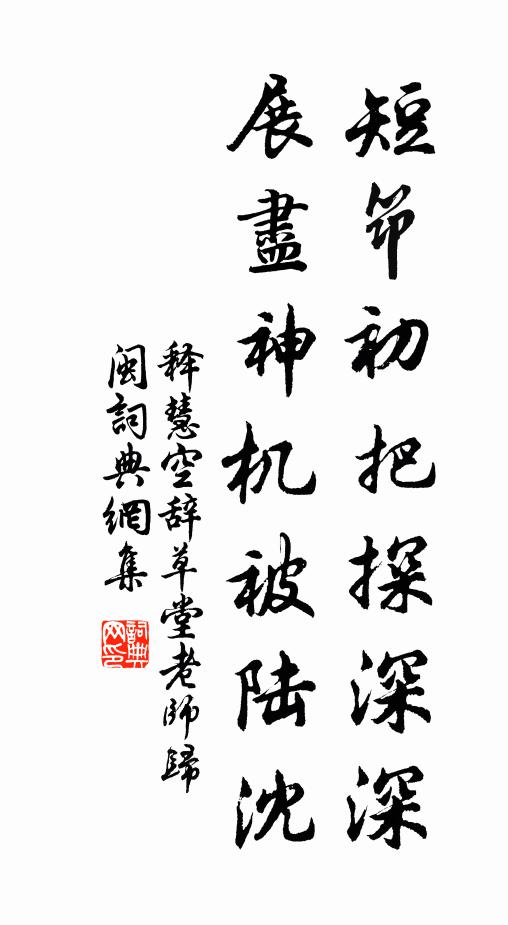 短筇初把探深深
展盡神机被陆沈
释慧空辞草堂老師歸
闽詞典網集
詞典网印